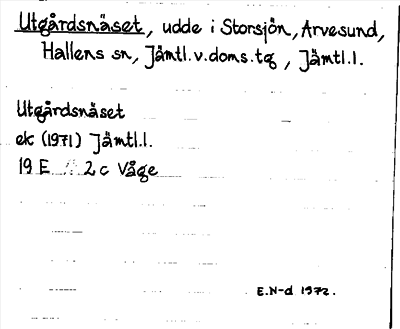 Utgårdsnäset, udde i Storsjön, Arvesund,
Hallens sn, Jämtl.v.doms.tg, Jämtl.l.
Utgårdsnäset
ek (1971) Jämtl.l.
19 E 2 c Våge
E.N-d 1972.